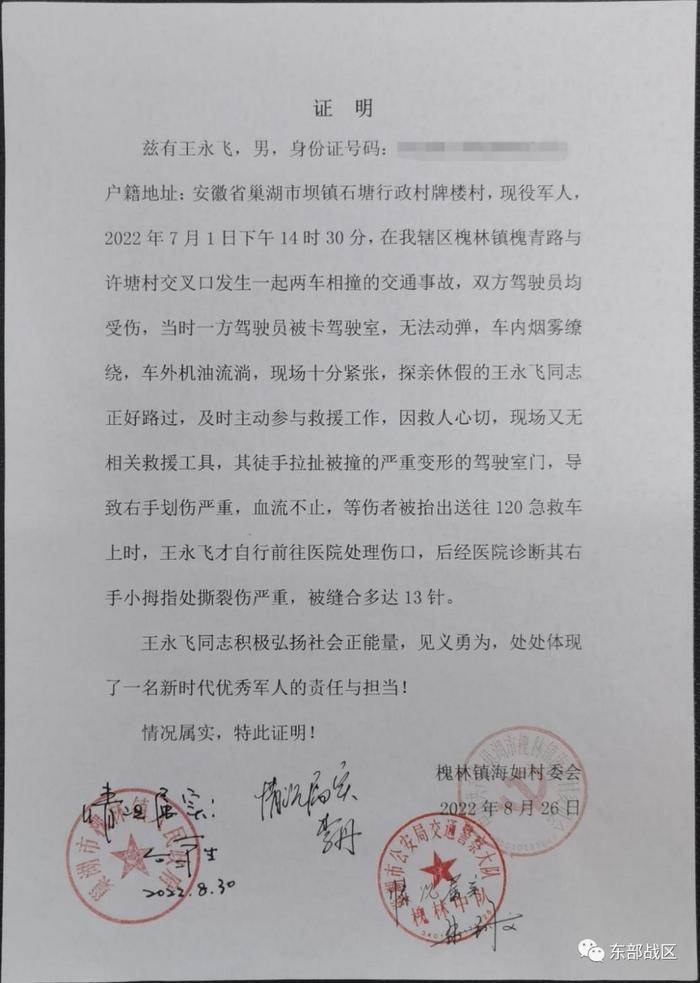 证 明
兹有王永飞，男，身份证号码：
户籍地址：安徽省巢湖市坝镇石塘行政村牌楼村，现役军人，
2022年7月1日下午14时30分，在我辖区槐林镇槐青路与
许塘村交叉口发生一起两车相撞的交通事故，双方驾驶员均
受伤，当时一方驾驶员被卡驾驶室，无法动弹，车内烟雾缭
绕，车外机油流淌，现场十分紧张，探亲休假的王永飞同志
正好路过，及时主动参与救援工作，因救人心切，现场又无
相关救援工具，其徒手拉扯被撞的严重变形的驾驶室门，导
致右手划伤严重，血流不止，等伤者被抬出送往120急救车
上时，王永飞才自行前往医院处理伤口，后经医院诊断其右
手小拇指处撕裂伤严重，被缝合多达13针。
王永飞同志积极弘扬社会正能量，见义勇为，处处体现
了一名新时代优秀军人的责任与担当！
情况属实，特此证明！
槐林镇海如村委会
2022年8月26日
情况属实
情况属实
2022.8.30
巢湖市槐林镇人民政府
巢湖市公安局交通警察大队
槐林中队
情况属实
东部战区